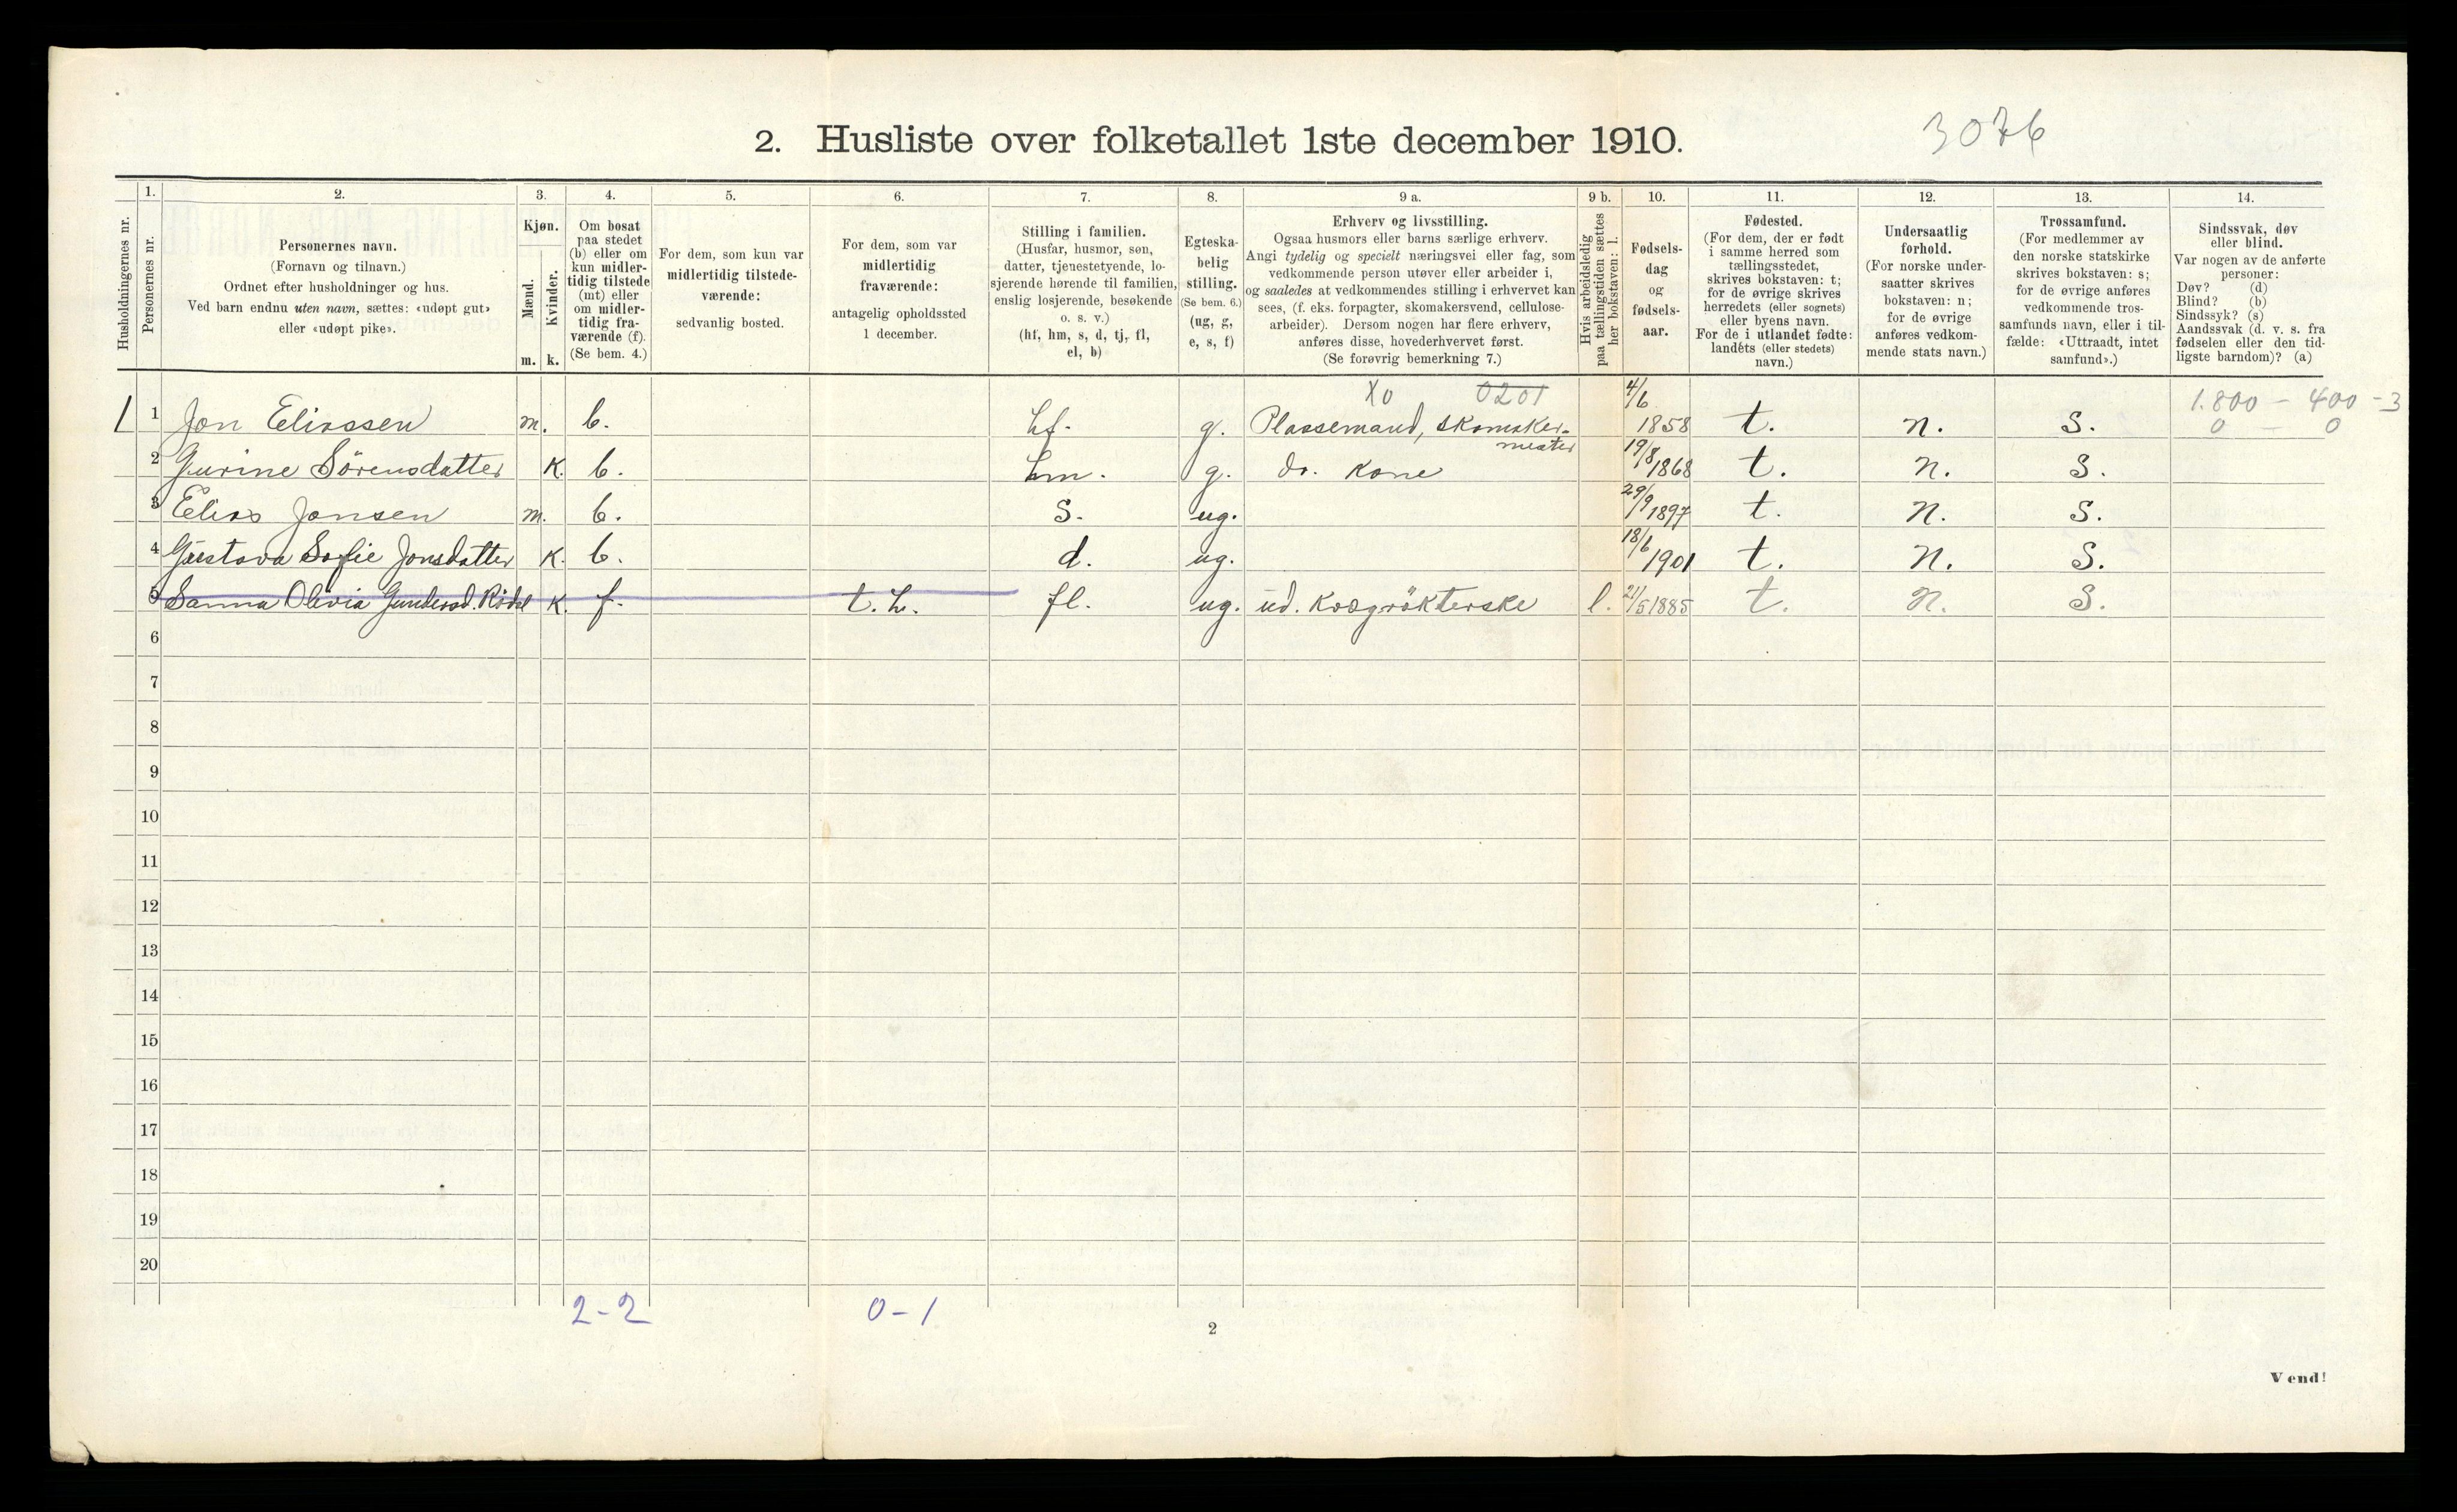 3076
2. Husliste over folketallet 1ste december 1910.
Husholdningernes nr.
1.
Personernes nr.
2.
Personernes navn.
(Fornavn og tilnavn.)
Ordnet efter husholdninger og hus.
Ved barn endnu uten navn, sættes: «udøpt gut»
eller «udøpt pike».
3.
Kjøn.
Mænd.
Kvinder.
m. k.
4.
Om bosat
paa stedet
(b) eller om
kun midler-
tidig tilstede
(mt) eller
om midler-
tidig fra-
værende (f).
(Se bem. 4.)
5.
For dem, som kun var
midlertidig tilstede-
værende:
sedvanlig bosted.
6.
For dem, som var
midlertidig
fraværende:
antagelig opholdssted
1 december.
7.
Stilling i familien.
(Husfar, husmor, søn,
datter, tjenestetyende, lo-
sjerende hørende til familien,
enslig losjerende, besøkende
o. s. v.)
(hf, hm, s, d, tj, fl,
el, b)
8.
Egteska-
belig
stilling.
(Se bem. 6.)
(ug, g,
e, s, f)
9 a.
Erhverv og livsstilling.
Ogsaa husmors eller barns særlige erhverv.
Angi tydelig og specielt næringsvei eller fag, som
vedkommende person utøver eller arbeider i,
og saaledes at vedkommendes stilling i erhvervet kan
sees, (f. eks. forpagter, skomakersvend, cellulose-
arbeider). Dersom nogen har flere erhverv,
anføres disse, hovederhvervet først.
(Se forøvrig bemerkning 7.)
9 b.
Hvis arbeidsledig
paa tællingstiden sættes
her bokstaven: l.
10.
Fødsels-
dag
og
fødsels-
aar.
11.
Fødested.
(For dem, der er født
i samme herred som
tællingsstedet,
skrives bokstaven: t;
for de øvrige skrives
herredets (eller sognets)
eller byens navn.
For de i utlandet fødte:
landets (eller stedets)
navn.)
12.
Undersaatlig
forhold.
(For norske under-
saatter skrives
bokstaven: n;
for de øvrige
anføres vedkom-
mende stats navn.)
13.
Trossamfund.
(For medlemmer av
den norske statskirke
skrives bokstaven: s;
for de øvrige anføres
vedkommende tros-
samfunds navn, eller i til-
fælde: «Uttraadt, intet
samfund».)
14.
Sindssvak, døv
eller blind.
Var nogen av de anførte
personer:
Døv? (d)
Blind? (b)
Sindssyk? (s)
Aandssvak (d. v. s. fra
fødselen eller den tid-
ligste barndom)? (a)
X0 0201 4/6 1.800 - 400 - 3
1 1 Jon Eliassen m. b. hf. g. Plassemand, skomaker- 1858 t. n. S. 0 - 0
mester
2 Gurine Sörensdatter K. b. hm. g. ds. Kone 19/8 1868 t. n. S.
3 Elias Jonsen m. b. S. ug. 29/9 1897 t. n. S.
4 Gustava Sofie Jonsdatter K. b. d. ug. 18/6 1901 t. n. S.
5 Sanna Olivia Gundersd. Rödal K. f. t. h. fl. ug. ud. Kvægrökterske l. 21/5 1885 t. n. S.
6
7
8
9
10
11
12
13
14
15
16
17
18
19
20
2-2 0-1
2
Vend!